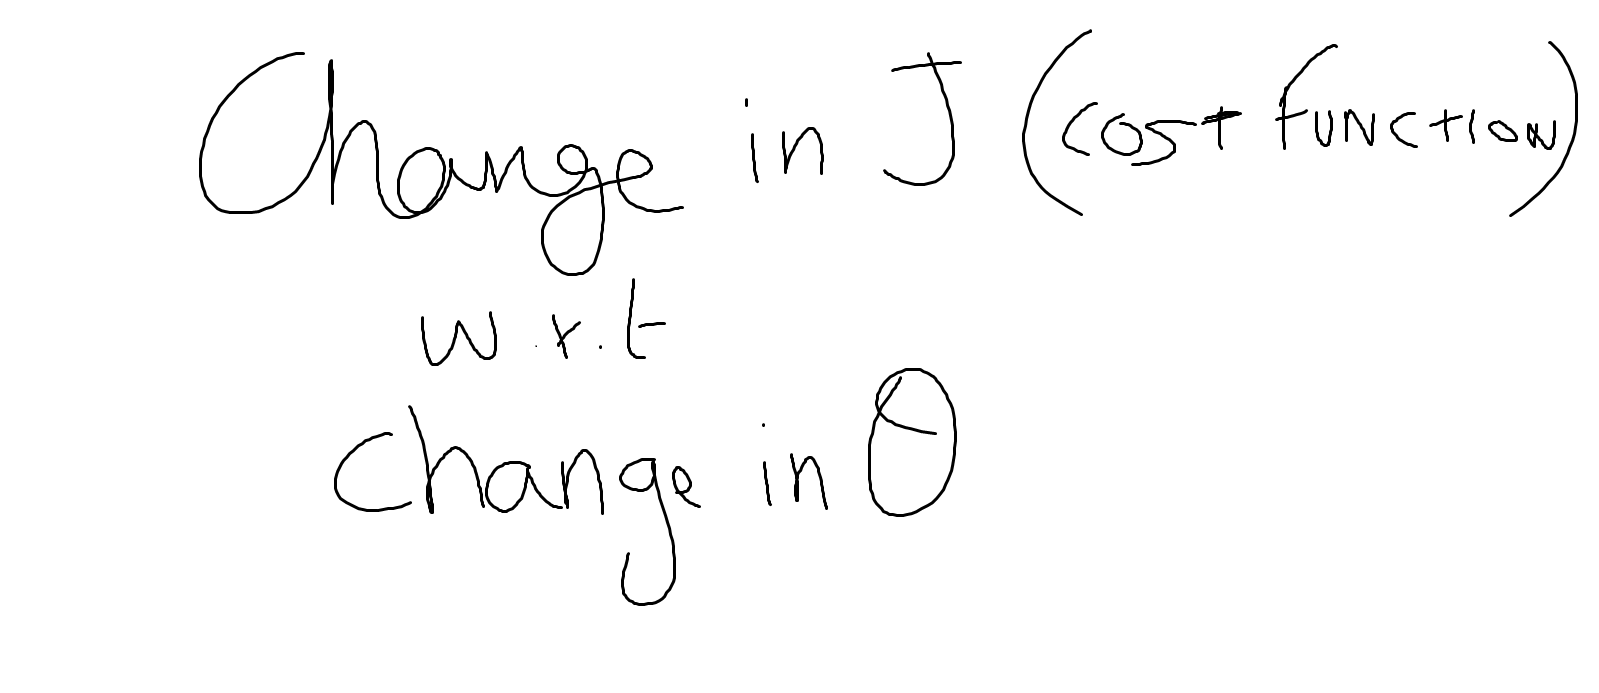 Change in J (cost function)
w.r.t
change in θ